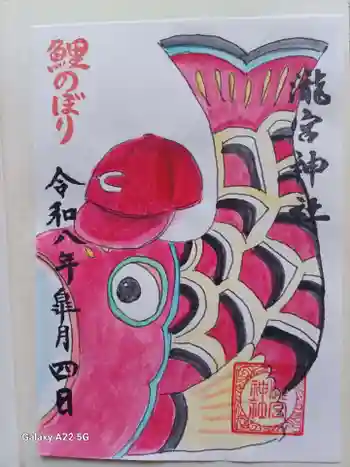 瀧宮神社
鯉のぼり
令和八年皐月四日
C
瀧宮
神社
Galaxy A22 5G